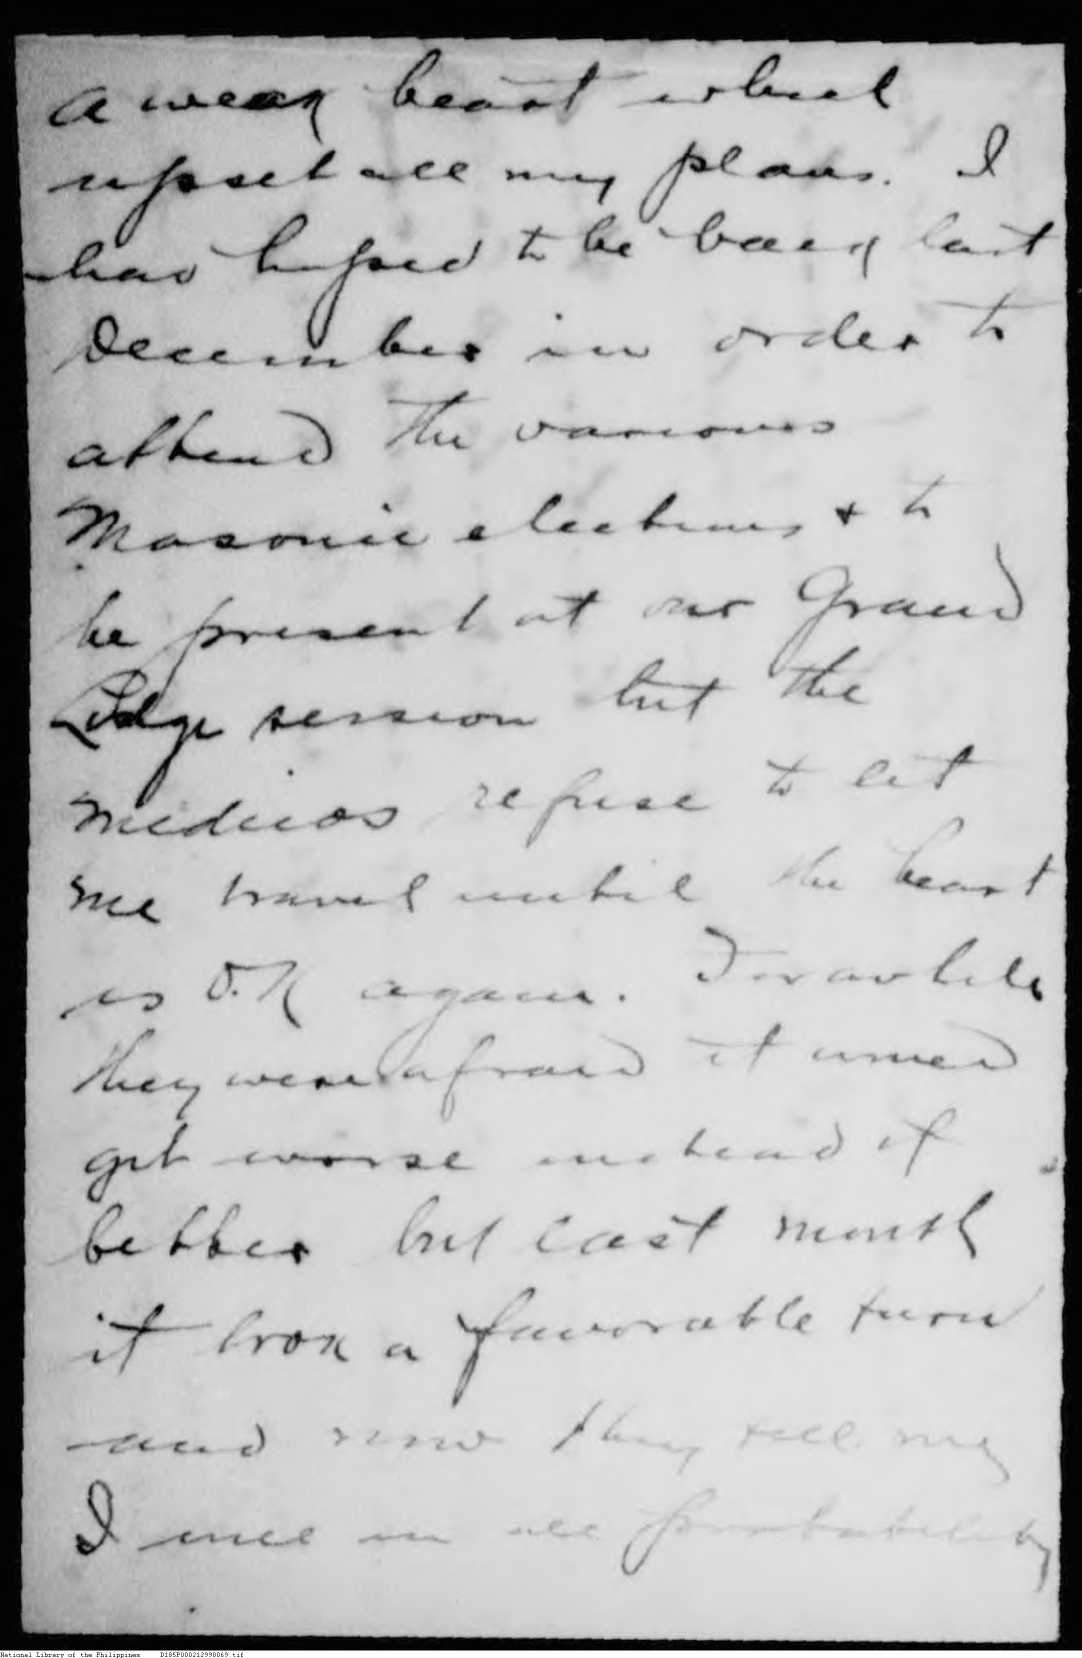 a weak heart which
upset all my plans. I
had hoped to be back last
December in order to
attend the various
Masonic elections & to
be present at our Grand
Lodge session but the
medicos refuse to let
me travel until the heart
is O.K again. For awhile
they were afraid it would
get worse instead of
better but last month
it took a favorable turn
and now they tell me
I will in all probability
National Library of the Philippines D185P000212998069.tif